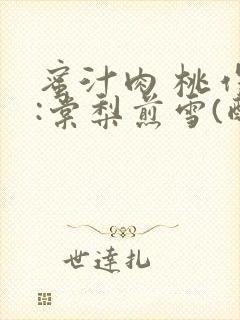 蜜汁肉桃
:棠梨煎雪(
世达扎